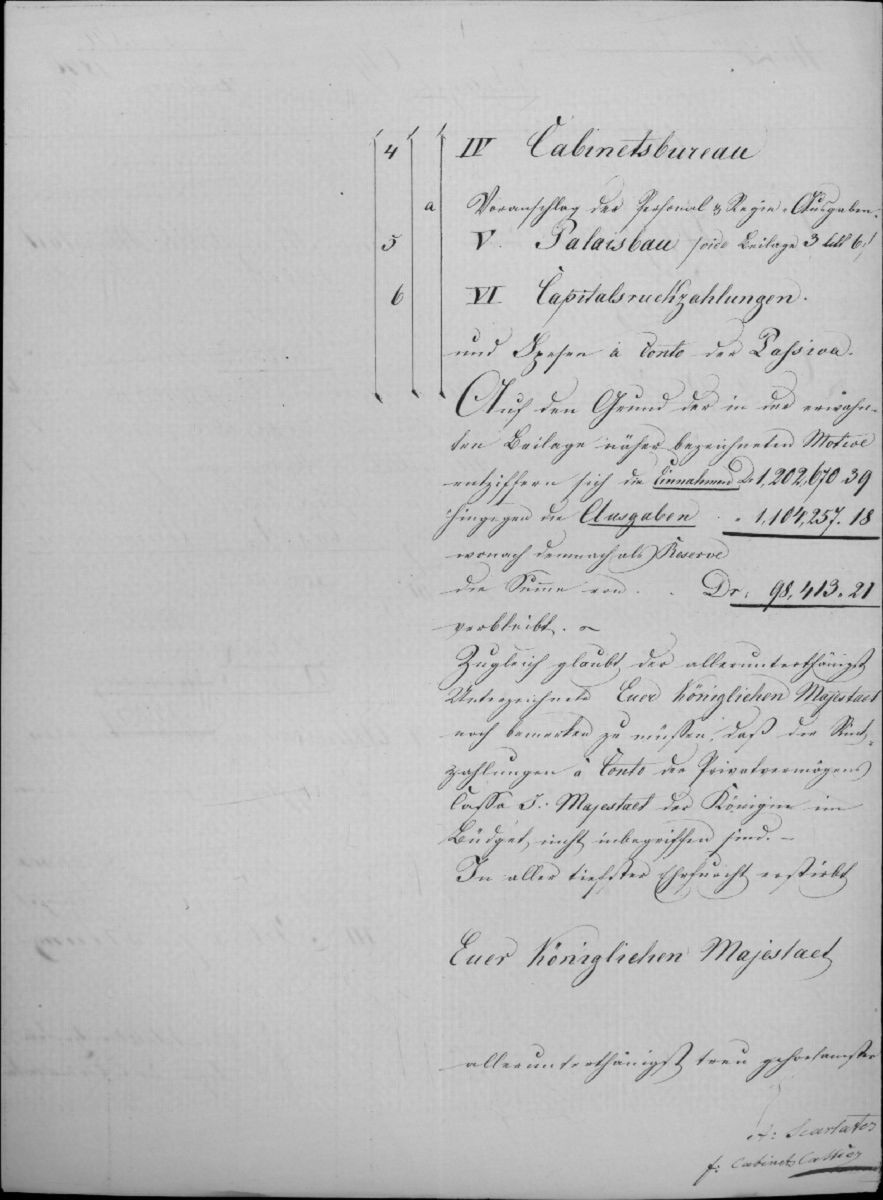 4 IV Cabinetsbureau
a Voranschlag der Personal & Regie-Ausgaben.
5 V. Palaisbau /: vide Beilage 3 bis 6 :/
6 VI Capitalsruckzahlungen.
und Spesen à Conto der Passiva.
Auf den Grund der in der erwähn-
ten Beilage näher bezeichneten Motive
entziffern sich die Einnahmen Dr 1,202,670 39
hingegen die Ausgaben . " 1,104,257. 18
wonach demnach als Reserve
die Summe von . . Dr. 98,413. 21
verbleibt. –
Zugleich glaubt der allerunterthänigst
Unterzeichnete Euer Königlichen Majestaet
noch bemerken zu müssen, daß die Rück-
zahlungen à Conto der Privatvermögens
Cassa I. Majestaet der Königin im
Büdget nicht inbegriffen sind. –
In aller tiefster Ehrfurcht erstirbt
Euer Königlichen Majestaet
allerunterthänigst treu gehorsamster
A: Scarlatos
f: Cabinets Cassier